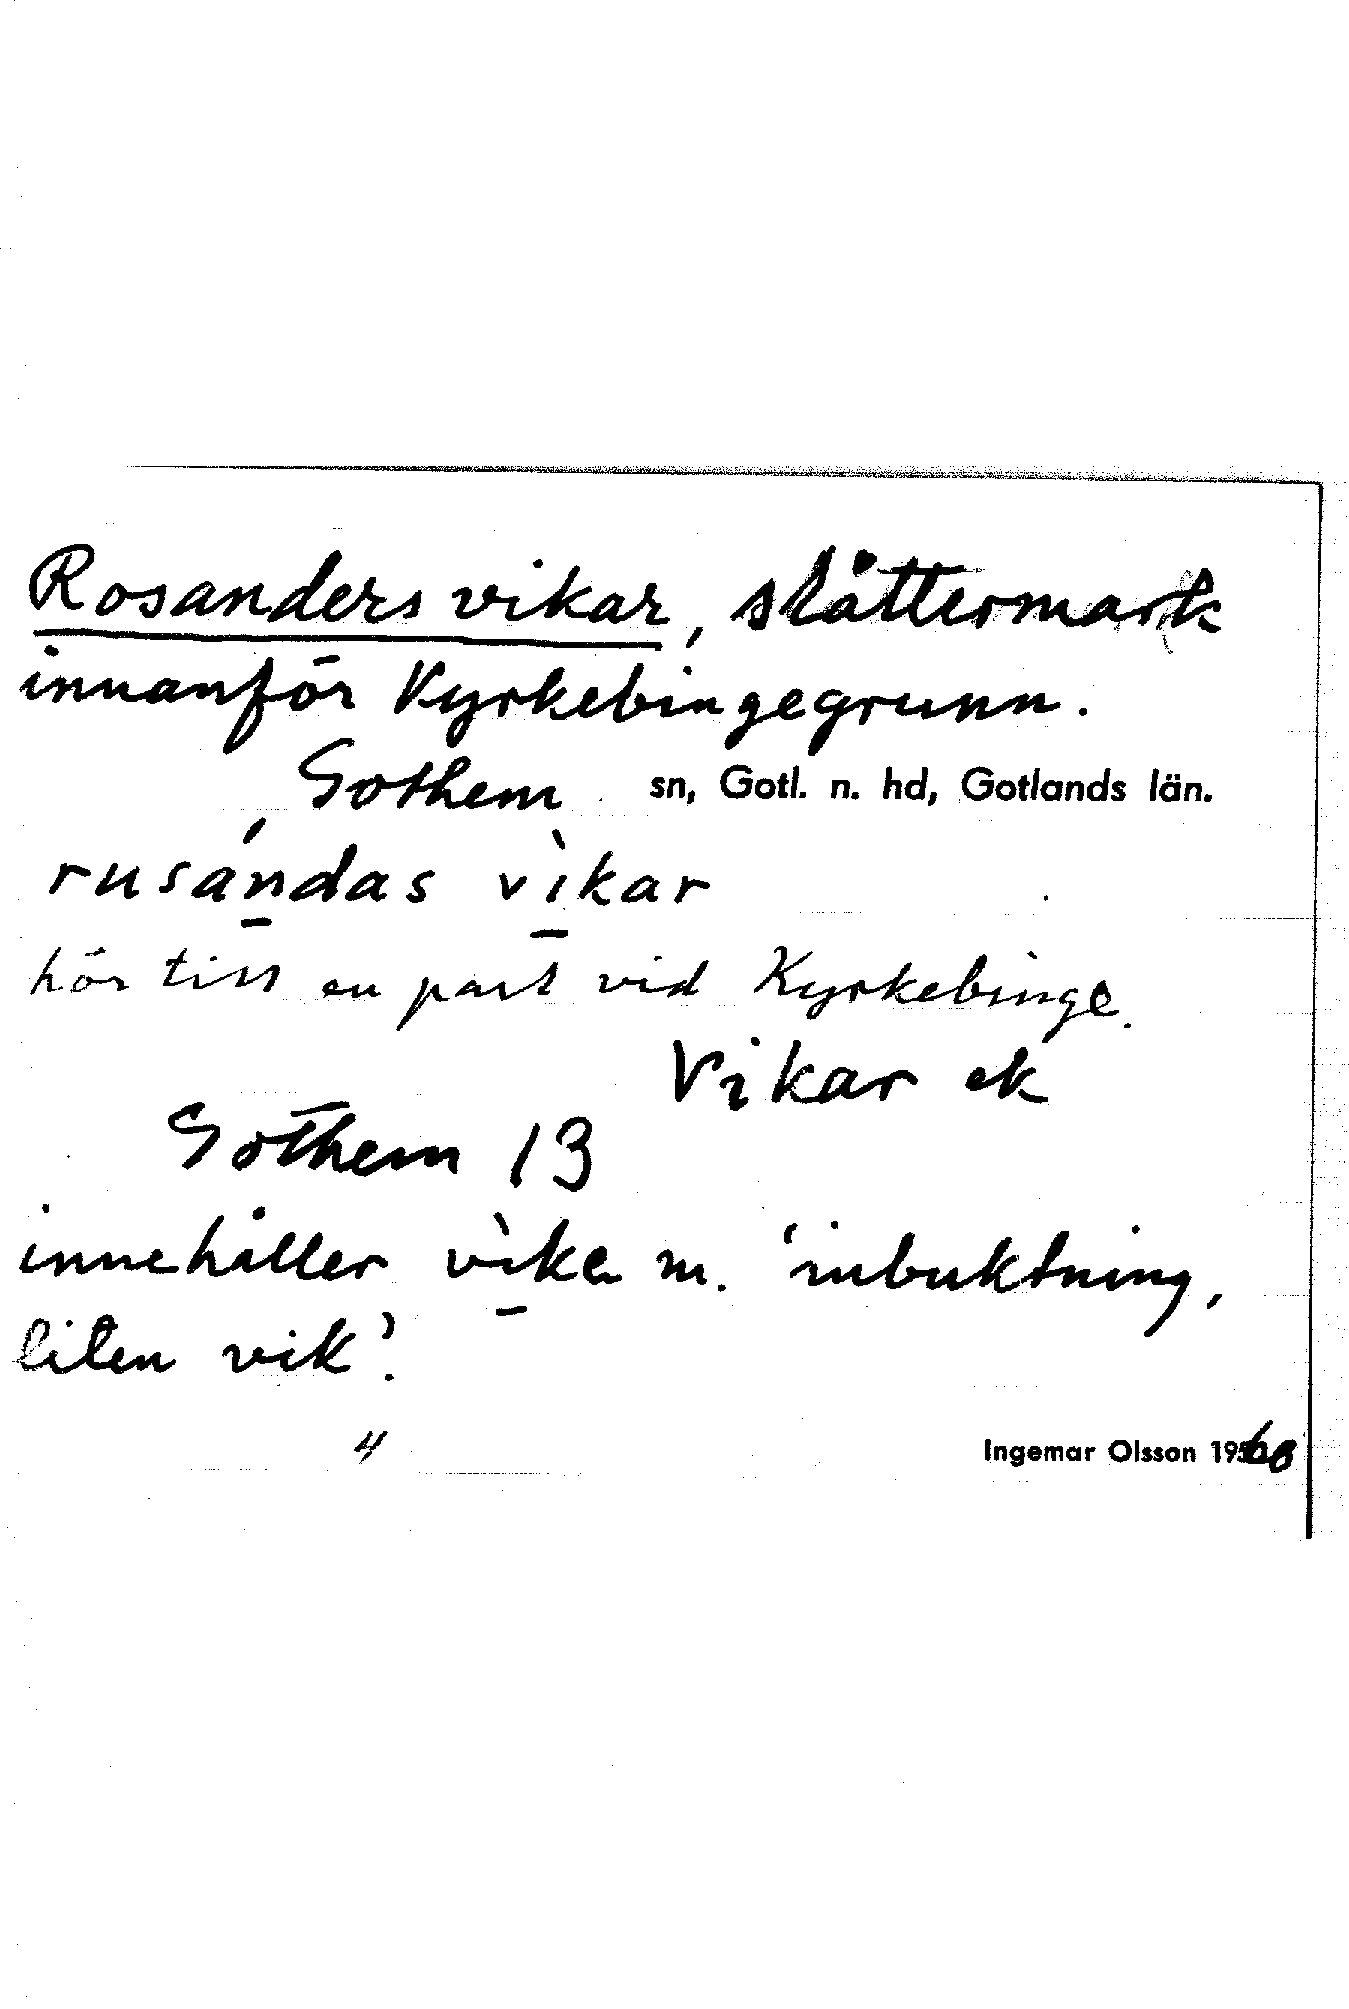 Rosanders vikar, slåttermark
innanför Kyrkebingegrunn.
Gothem sn, Gotl. n. hd, Gotlands län.
rusándas vìkar
hör till en part vid Kyrkebinge.
Vikar ek
Gothem 13
innehåller vìka m. 'inbuktning,
liten vik'.
4
Ingemar Olsson 1960